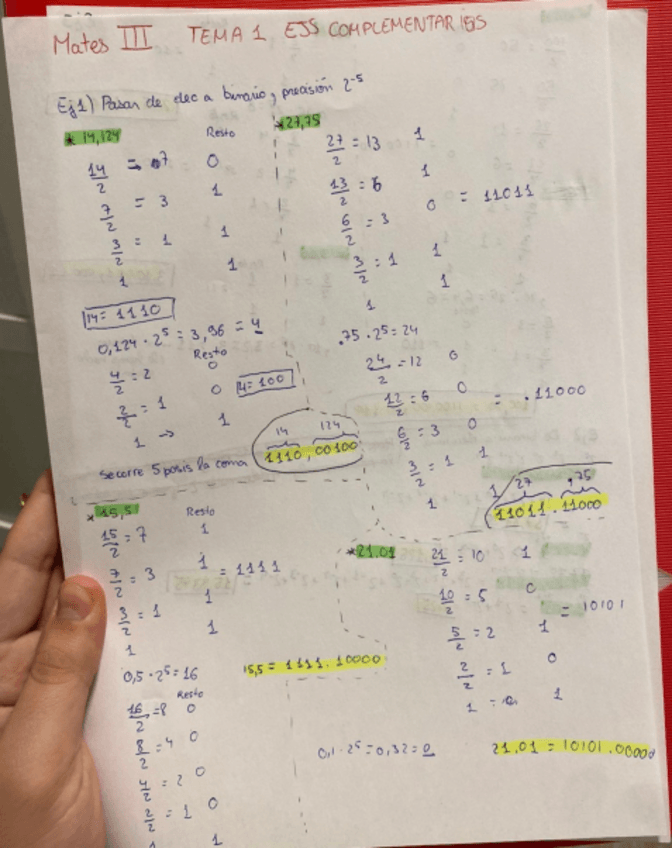 Mates III TEMA 1 EJS COMPLEMENTARIOS
Ej 1) Pasar de dec a binario, precisión 2^-5
* 14,124 Resto
14/2 = 7 0
7/2 = 3 1
3/2 = 1 1
1 1
14 = 1110
0,124 · 2^5 = 3,96 = 4
Resto
4/2 = 2 0
2/2 = 1 0 4 = 100
1 → 1
14 124
se corre 5 posis la coma 1110,00100
* 27,75
27/2 = 13 1
13/2 = 6 1
6/2 = 3 0 = 11011
3/2 = 1 1
1 1
.75 · 2^5 = 24
24/2 = 12 0
12/2 = 6 0 = .11000
6/2 = 3 0
3/2 = 1 1
1 1
27 ,75
11011.11000
* 15,5 Resto
15/2 = 7 1
7/2 = 3 1 = 1111
3/2 = 1 1
1 1
0,5 · 2^5 = 16 15,5 = 1111.10000
Resto
16/2 = 8 0
8/2 = 4 0
4/2 = 2 0
2/2 = 1 0
1 1
* 21,01
21/2 = 10 1
10/2 = 5 0
5/2 = 2 1 = 10101
2/2 = 1 0
1 = 0 1
0,1 · 2^5 = 0,32 = 0 21,01 = 10101.00000